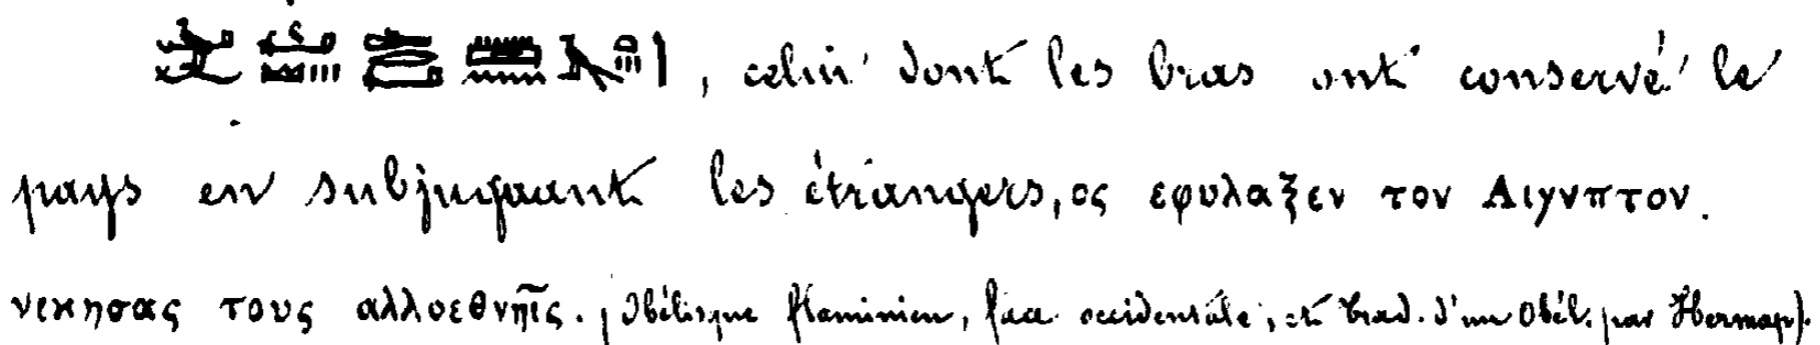 , celui dont les bras ont conservé le
pays en subjuguant les étrangers, ος εφυλαξεν τον Αιγυπτον.
νικησας τους αλλοεθνῆις. (Obélisque flaminien, face occidentale, et trad. d'un Obél. par Hermap).